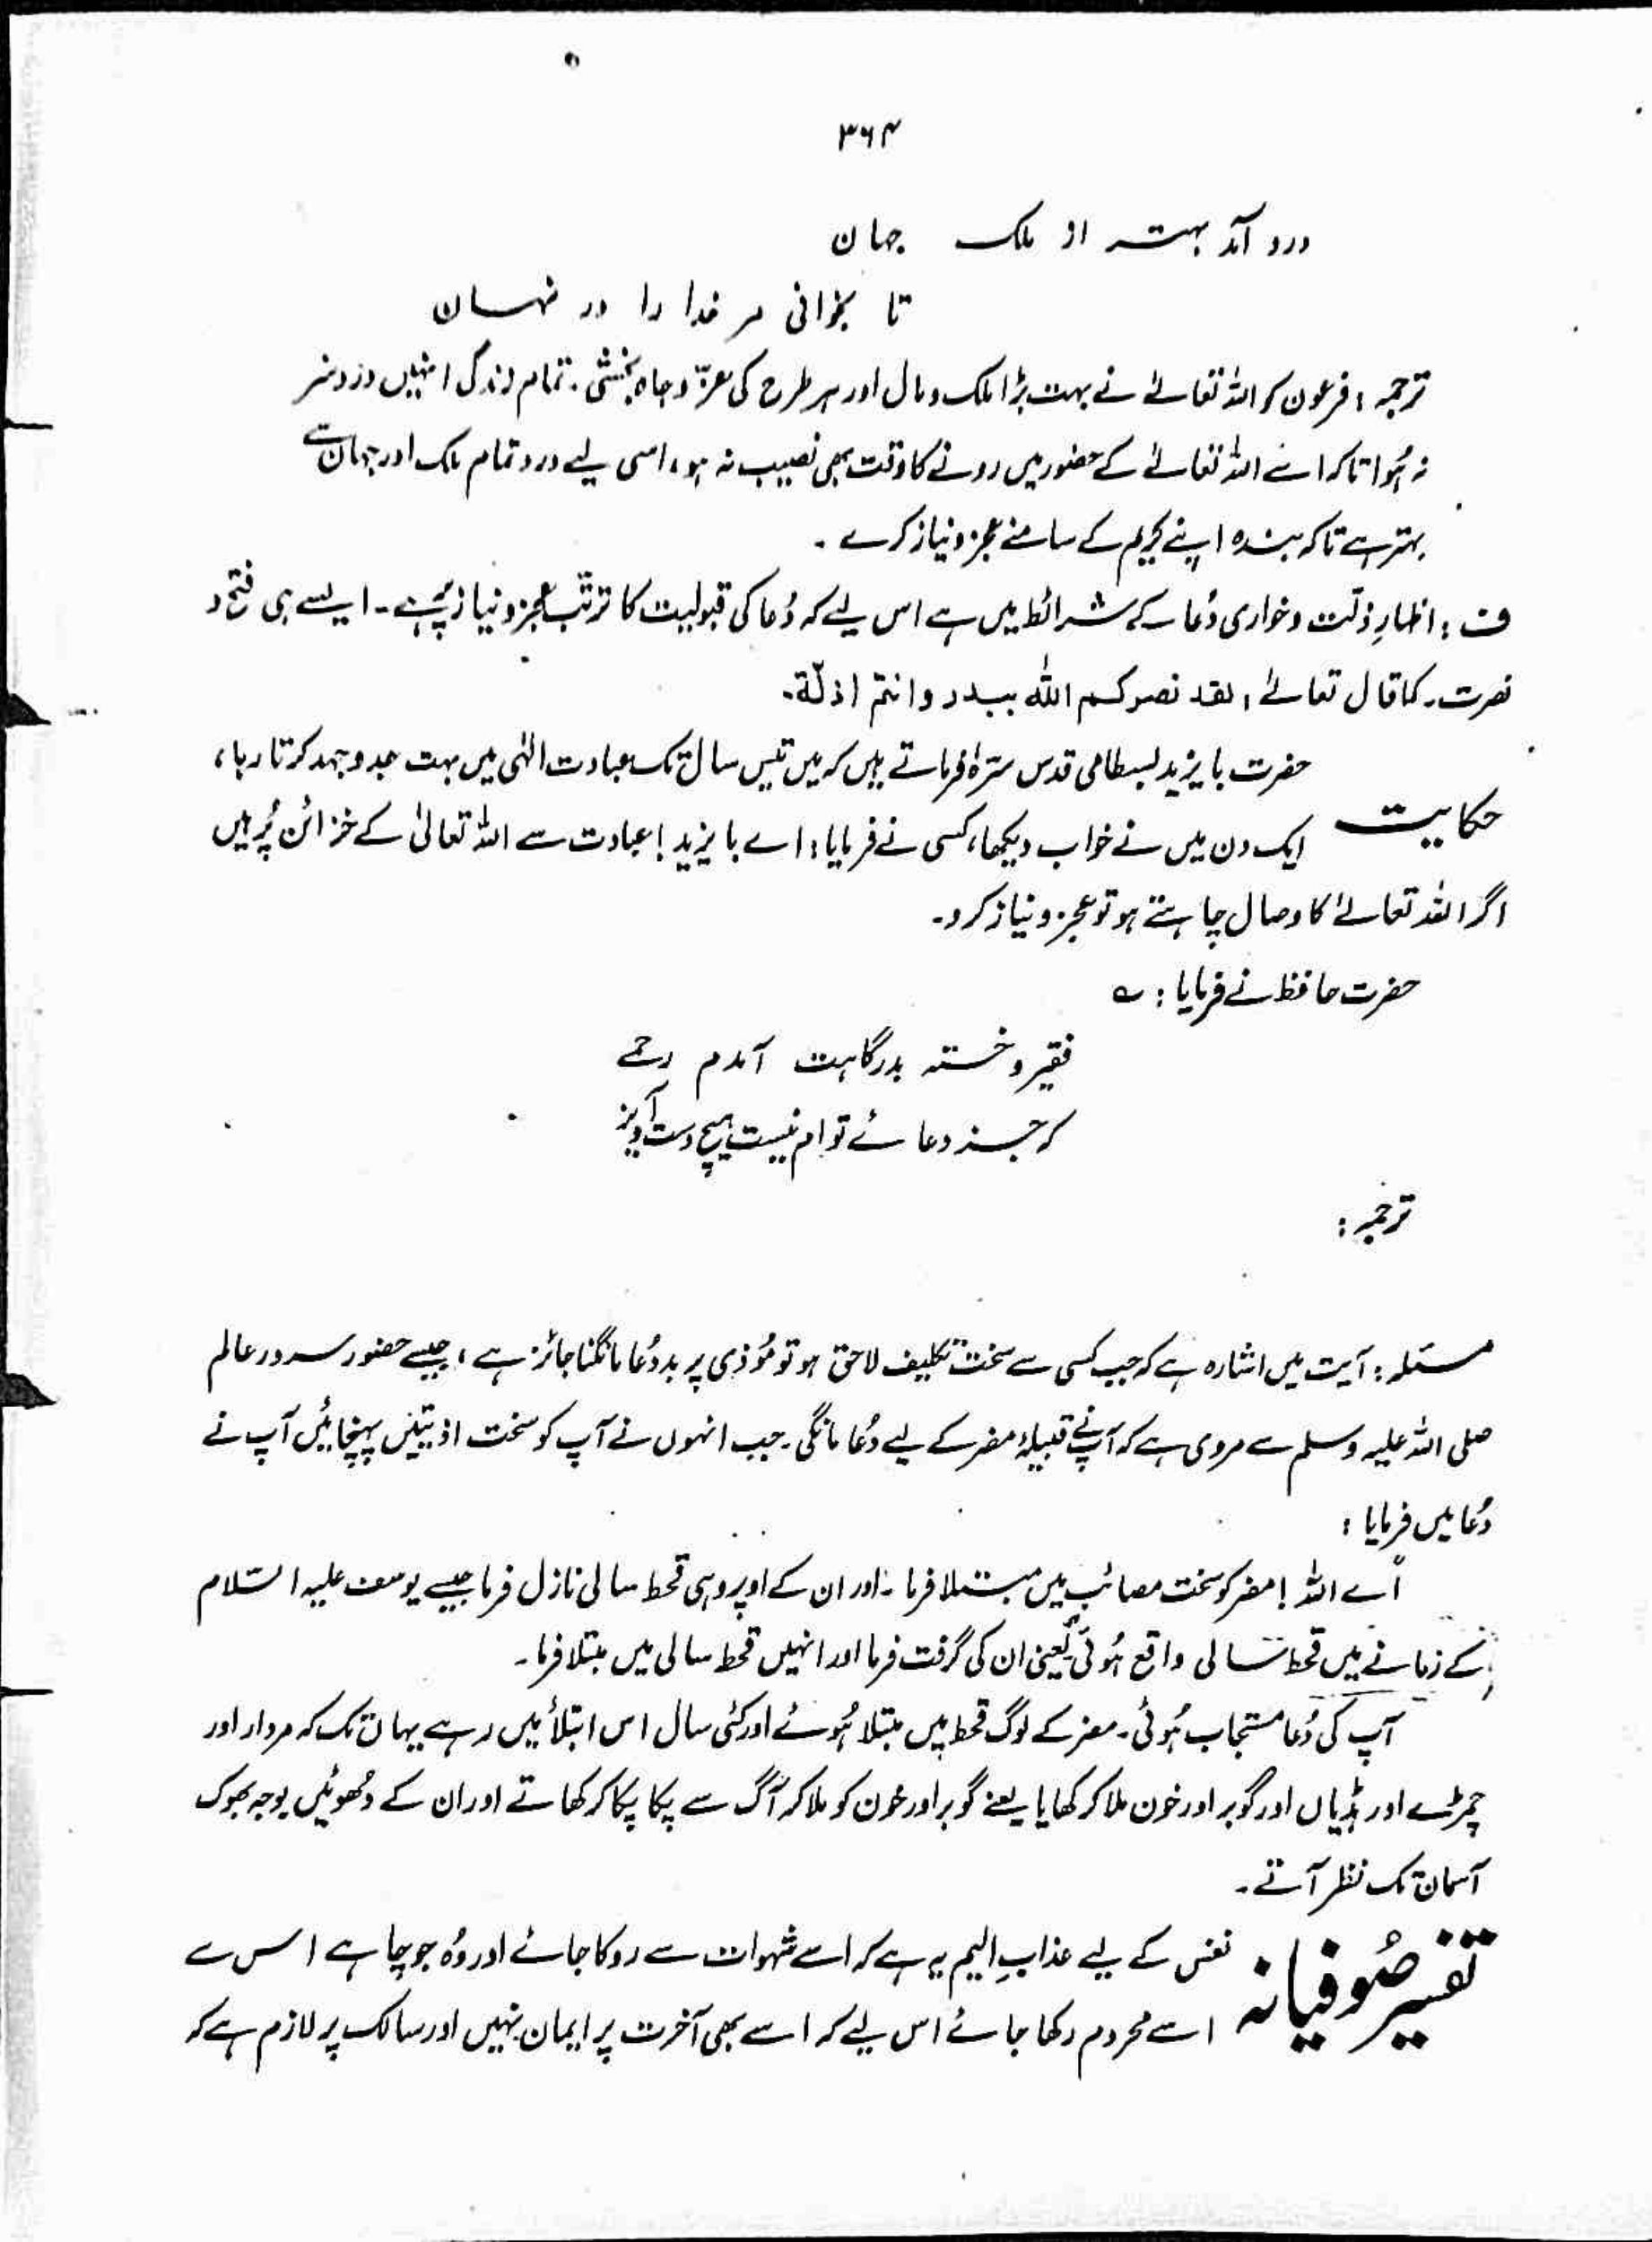 ۳۶۴
درد آمد بہتر از ملک جہان
تا بخوانی مر خدا را در نہان
ترجمہ : فرعون کو اللہ تعالےٰ نے بہت بڑا ملک و مال اور ہر طرح کی عزّ و جاہ بخشی ۔ تمام زندگی انہیں درد سر
نہ ہُوا تاکہ اسے اللہ تعالےٰ کے حضور میں رونے کا وقت بھی نصیب نہ ہو ، اسی لیے درد تمام ملک اور جہان سے
بہتر ہے تاکہ بندہ اپنے کریم کے سامنے عجز و نیاز کرے ۔
ف : اظہارِ ذلّت و خواری دُعا کے شرائط میں ہے اس لیے کہ دُعا کی قبولیت کا ترتّب عجز و نیاز پر ہے ۔ ایسے ہی فتح و
نصرت ۔ کما قال تعالےٰ : لقد نصرکم اللہ ببدر وانتم اذلّۃ ۔
حضرت بایزید بسطامی قدس سترہٗ فرماتے ہیں کہ میں تیس سال تک عبادت الٰہی میں بہت جدوجہد کرتا رہا ،
حکایت ایک دن میں نے خواب دیکھا ، کسی نے فرمایا : اے بایزید ! عبادت سے اللہ تعالیٰ کے خزائن پُر ہیں
اگر اللہ تعالےٰ کا وصال چاہتے ہو تو عجز و نیاز کرو ۔
حضرت حافظ نے فرمایا : ؎
فقیر و خستہ بدرگاہت آمدم رحمے
کہ جز دعائے تو ام نیست ہیچ دست آویز
ترجمہ :
مسئلہ : آیت میں اشارہ ہے کہ جب کسی سے سخت تکلیف لاحق ہو تو مُوذی پر بددُعا مانگنا جائز ہے ، جیسے حضور سرور عالم
صلی اللہ علیہ وسلم سے مروی ہے کہ آپ نے قبیلۂ مضر کے لیے دُعا مانگی ۔ جب انہوں نے آپ کو سخت اذیتیں پہنچائیں آپ نے
دُعا میں فرمایا :
اے اللہ ! مضر کو سخت مصائب میں مبتلا فرما ۔ اور ان کے اوپر وہی قحط سالی نازل فرما جیسے یوسف علیہ السّلام
کے زمانے میں قحط سالی واقع ہُوئی یعنی ان کی گرفت فرما اور انہیں قحط سالی میں مبتلا فرما ۔
آپ کی دُعا مستجاب ہُوئی ۔ مضر کے لوگ قحط میں مبتلا ہُوئے اور کئی سال اس ابتلأ میں رہے یہاں تک کہ مردار اور
چمڑے اور ہڈیاں اور گوبر اور خون ملا کر کھایا یعنے گوبر اور خون کو ملا کر آگ سے پکا پکا کر کھاتے اور ان کے دُھوئیں بوجہ بھوک
آسمان تک نظر آتے ۔
تفسیرِ صُوفیانہ نفس کے لیے عذابِ الیم یہ ہے کہ اسے شہوات سے روکا جائے اور وُہ جو چاہے اس سے
اسے محروم رکھا جائے اس لیے کہ اسے بھی آخرت پر ایمان نہیں اور سالک پر لازم ہے کہ